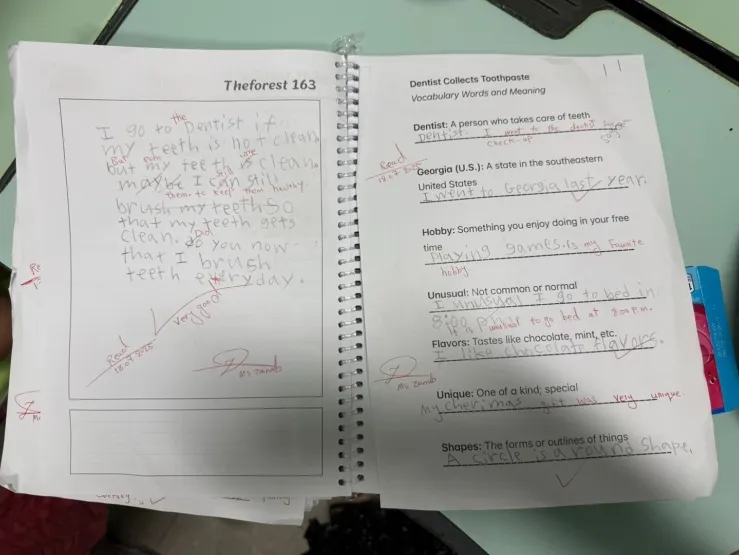 Theforest 163
the
I go to Dentist if
my teeth is not clean.
But are
but my teeth is clean.
still
maybe I can still
them to keep them healthy
brush my teeth so
that my teeth gets
Did
clean. do you now
that I brush
teeth everyday.
very good
Read
18.07.2025
Ms Zainab
Dentist Collects Toothpaste
Vocabulary Words and Meaning
Dentist: A person who takes care of teeth
Dentist. I went to the dentist for
check-up
Read
18.07.2025
Georgia (U.S.): A state in the southeastern
United States
I went to Georgia last year.
Hobby: Something you enjoy doing in your free
time
Playing games. is my Favorite
hobby
Unusual: Not common or normal
I unusual I go to bed in
8:00 p.m.
It is unusual to go bed at 8:00 P.m.
Flavors: Tastes like chocolate, mint, etc.
I like chocolate flavors.
Ms Zainab
Unique: One of a kind; special
My cherimas gift was very unique
Shapes: The forms or outlines of things
A circle is a round shape.